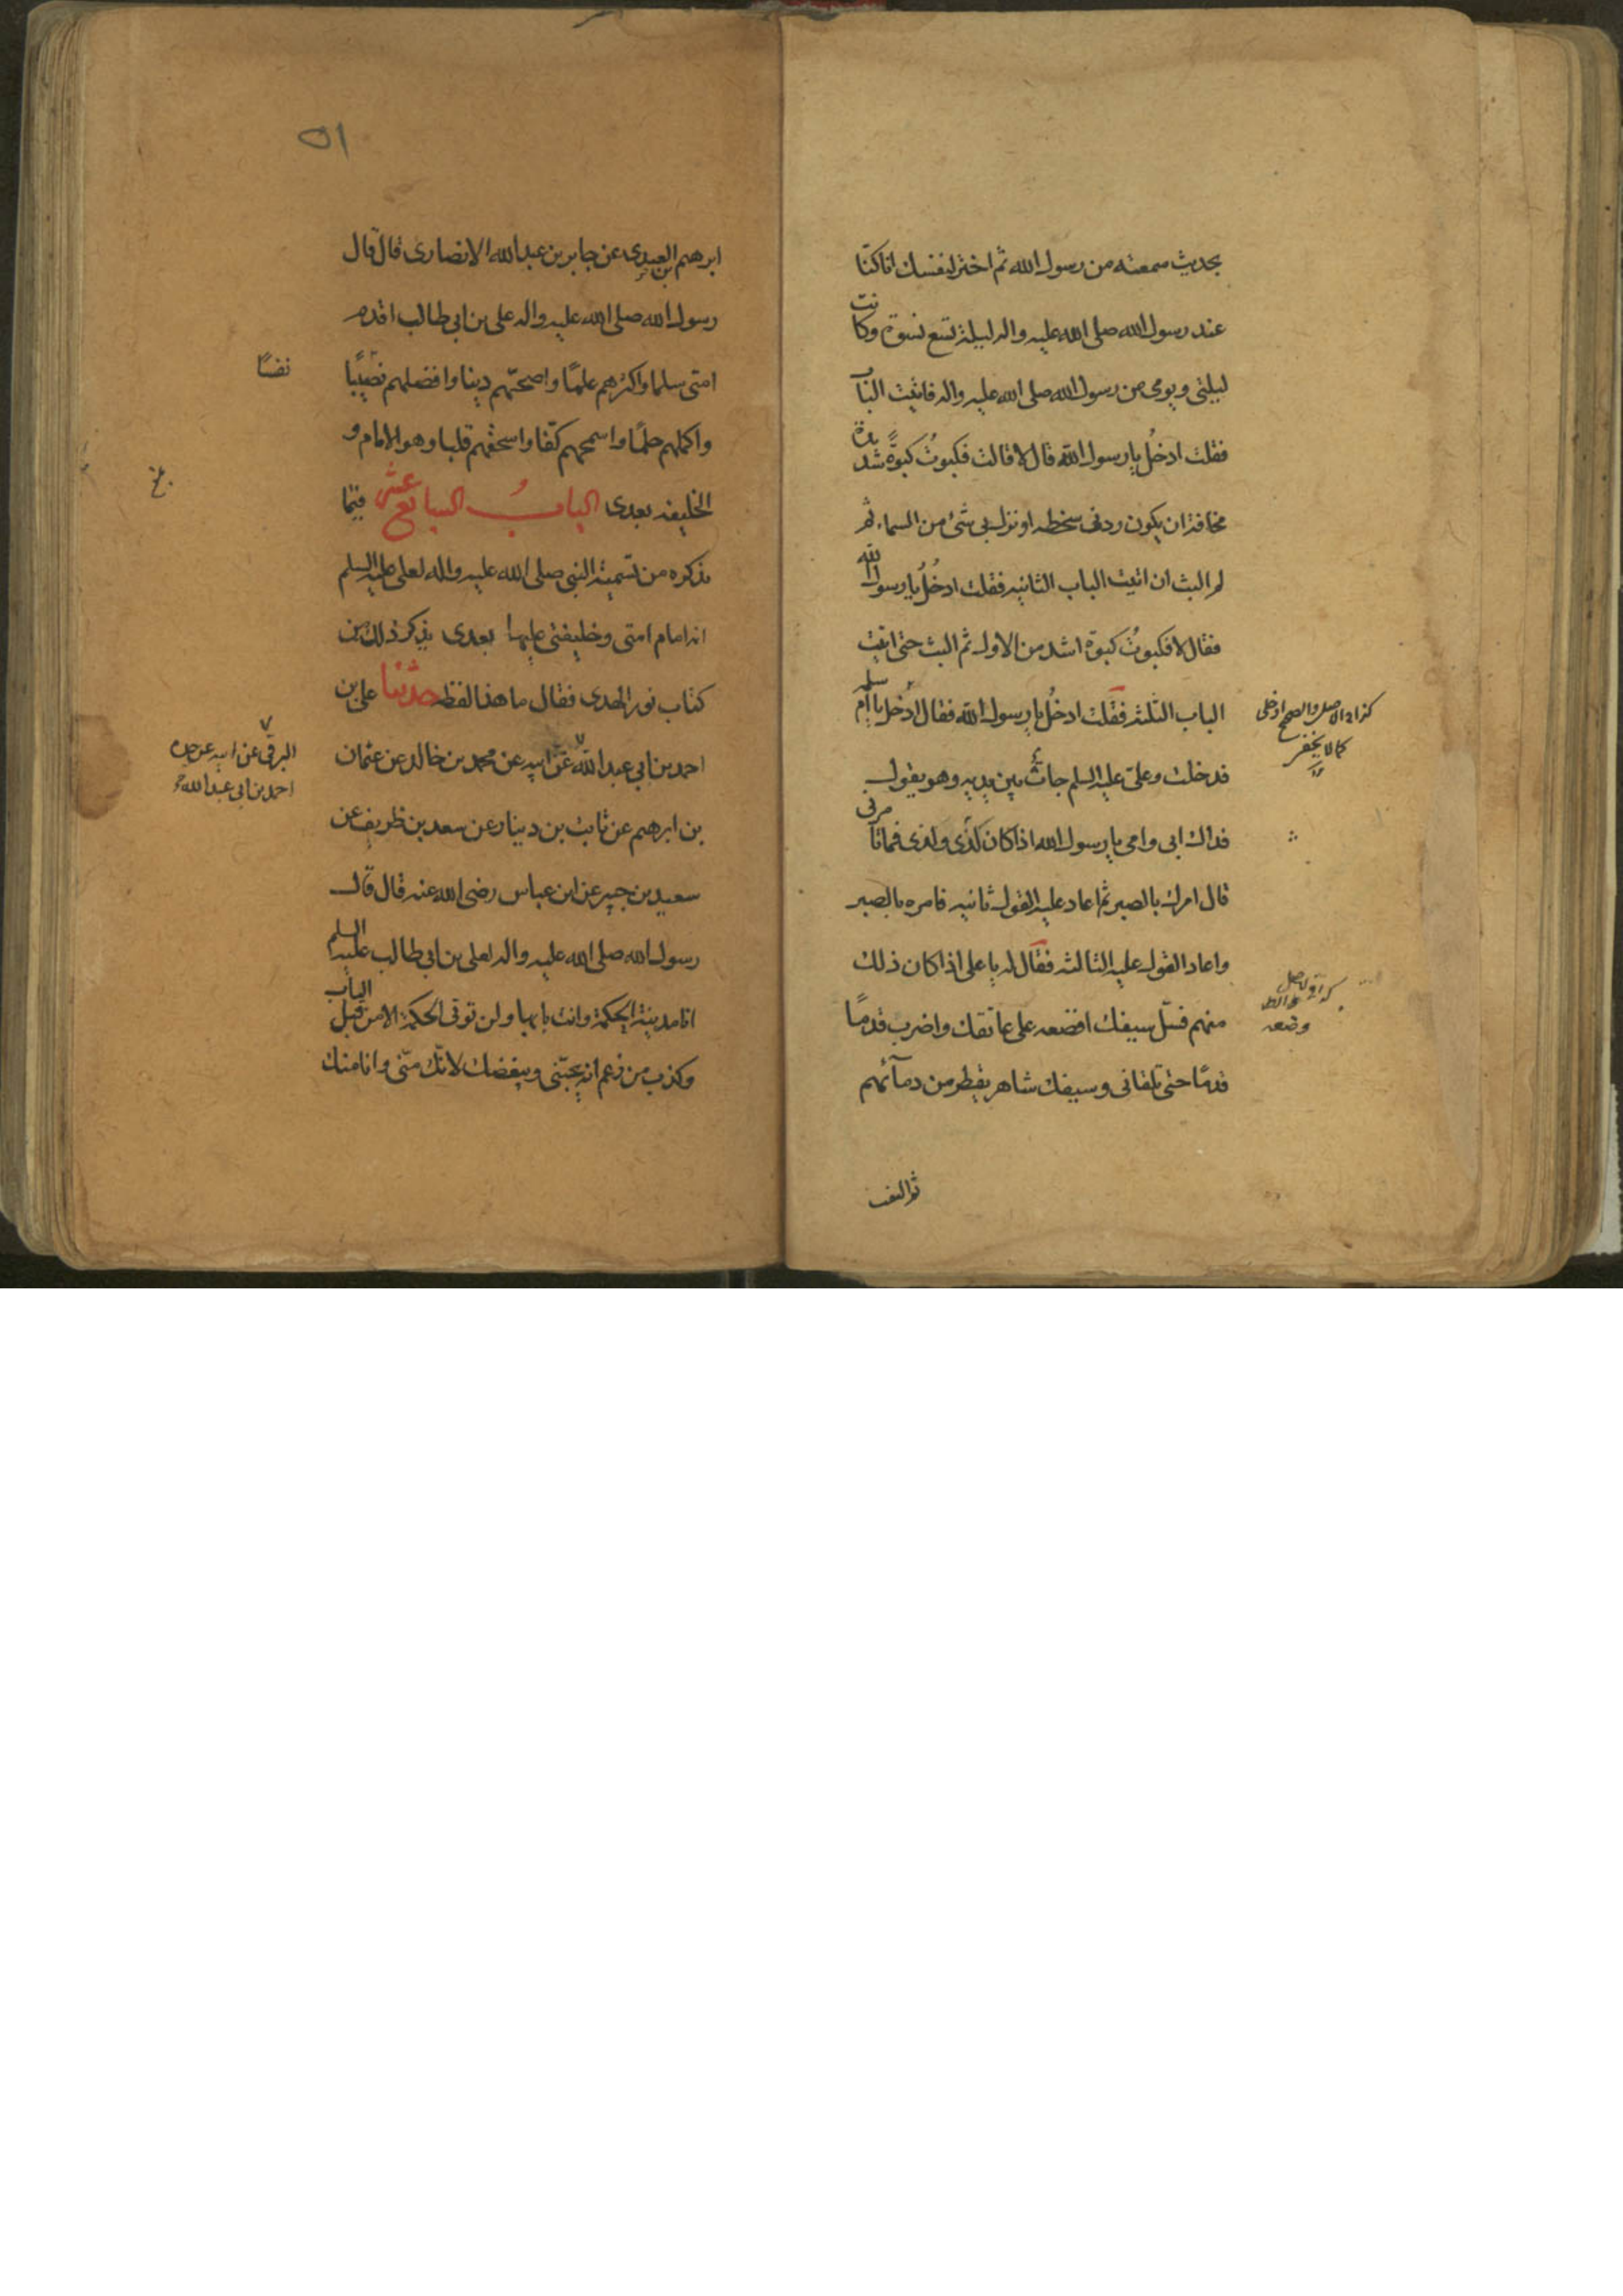 بحديث سمعته من رسول الله ثم اختر لنفسك انا كنا
عند رسول الله صلى الله عليه واله ليلة تسع نسوة وكانت
ليلتى ويومى من رسول الله صلى الله عليه واله فاتيت الباب
فقلت ادخُل يا رسول الله قال لا قالت فكبوتُ كبوةً شديدة
مخافة ان يكون ردنى سخطه او نزل بى شئ من السماء ثم
لم البث ان اتيت الباب الثانيه فقلت ادخُلُ يا رسول الله
فقال لا فكبوتُ كبوة اشد من الاول ثم البث حتى اتيت
الباب الثلثه فقلت ادخُل يا رسول الله فقال ادخل يا ام سلمه
كذا فى الاصل والصحيح ادخلى
كما لا يخفى
فدخلت وعلىّ عليه السلم جاثٌ بين يديه وهو يقول
فداك ابى وامى يا رسول الله اذا كان كذى وكذى فما تامرنى
قال امرك بالصبر ثم اعاد عليه القول ثانيه فامره بالصبر
واعاد القول عليه الثالثه فقال له يا على اذا كان ذلك
منهم فسّل سيفك افضعه على عاتقك واضرب قدمًا
كذا فى الاصل
وضعه
قدمًا حتى تلقانى وسيفك شاهر يقطر من دمآئهم
ثم التفت
٥١
ابرهيم بن العبدى عن جابر بن عبد الله الانصارى قال قال
رسول الله صلى الله عليه واله على بن ابى طالب اقدم
امتى سلما واكثرهم علمًا واصحّهم دينا وافضلهم نصيبًا
نفسًا
واكملهم حلمًا واسمحهم كفّا واسخفهم قلبا وهو الامام و
الخليفه بعدى البابُ السابع عشر فيما
نذكره من تسمية النبى صلى الله عليه واله لعلى عليه السلم
انه امام امتى وخليفتى عليها بعدى يذكر ذلك من
كتاب نور الهدى فقال ما هذا لفظه حدثنا على بن
احمد بن ابى عبد الله عن ابيه عن محمد بن خالد عن عثمان
البرقى عن ابيه عن جده
احمد بن ابى عبد الله
بن ابرهيم عن ثابت بن دينار عن سعد بن ظريف عن
سعيد بن جبير عن ابن عباس رضى الله عنه قال قال
رسول الله صلى الله عليه واله لعلى بن ابى طالب عليه السلم
انا مدينة الحكمة وانت بابها ولن توتى الحكمة الا من قبل الباب
وكذب من زعم انه يحبّنى ويبغضك لانّك منّى وانا منك